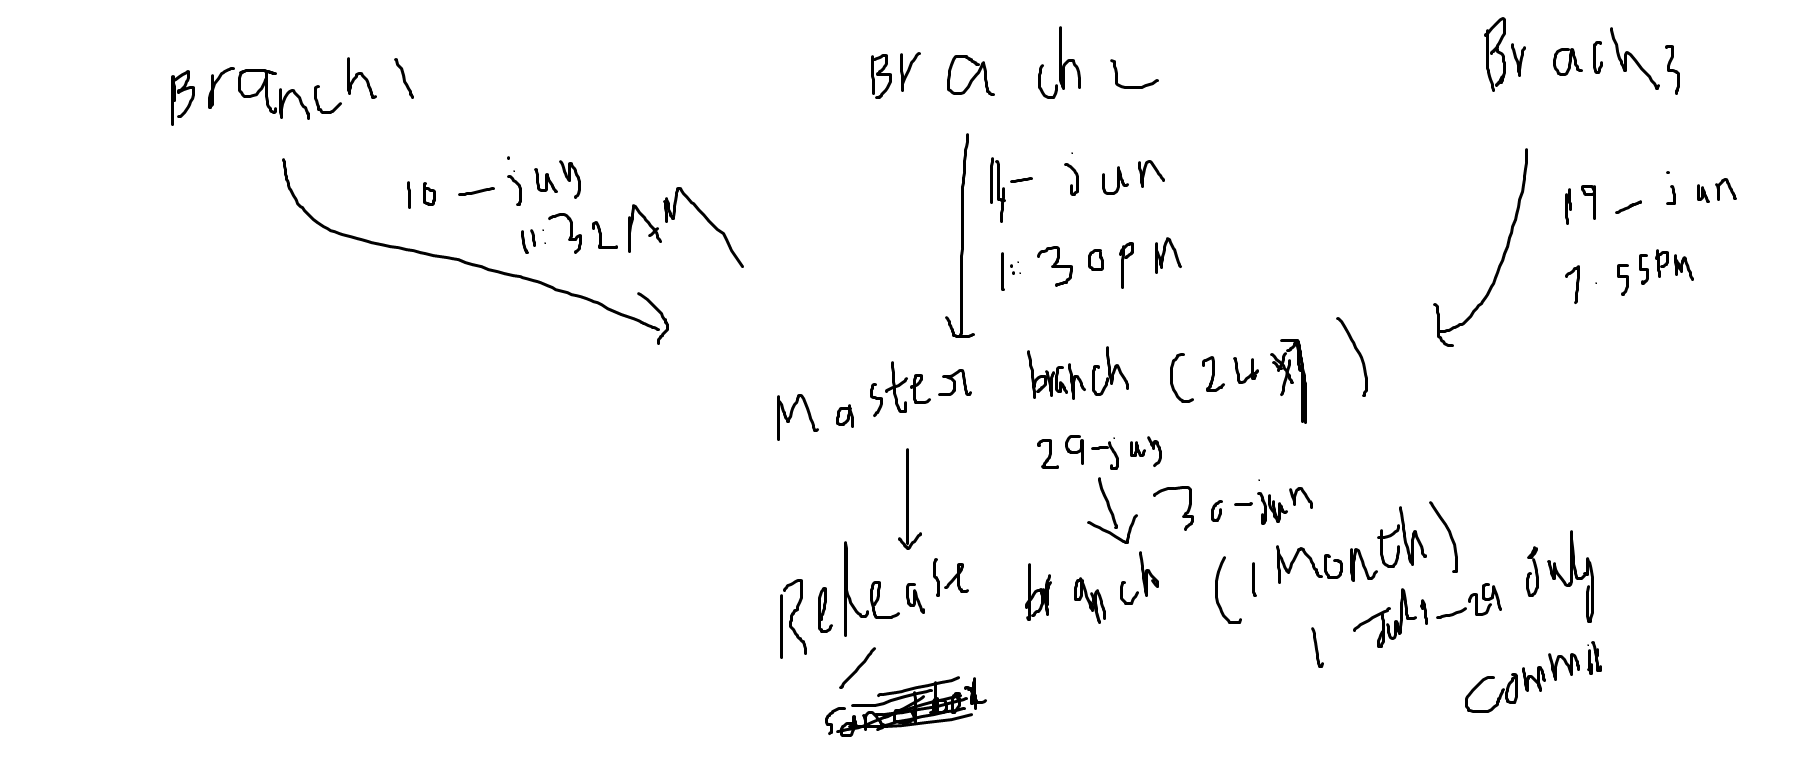 Branch 1
Brach 2
Brach 3
10 - jun
11:32 AM
14 - jun
1:30 PM
19 - jun
7.55PM
Master branch (24x7)
29-jun
30-jun
Release branch (1 Month)
1 July - 29 July
commit